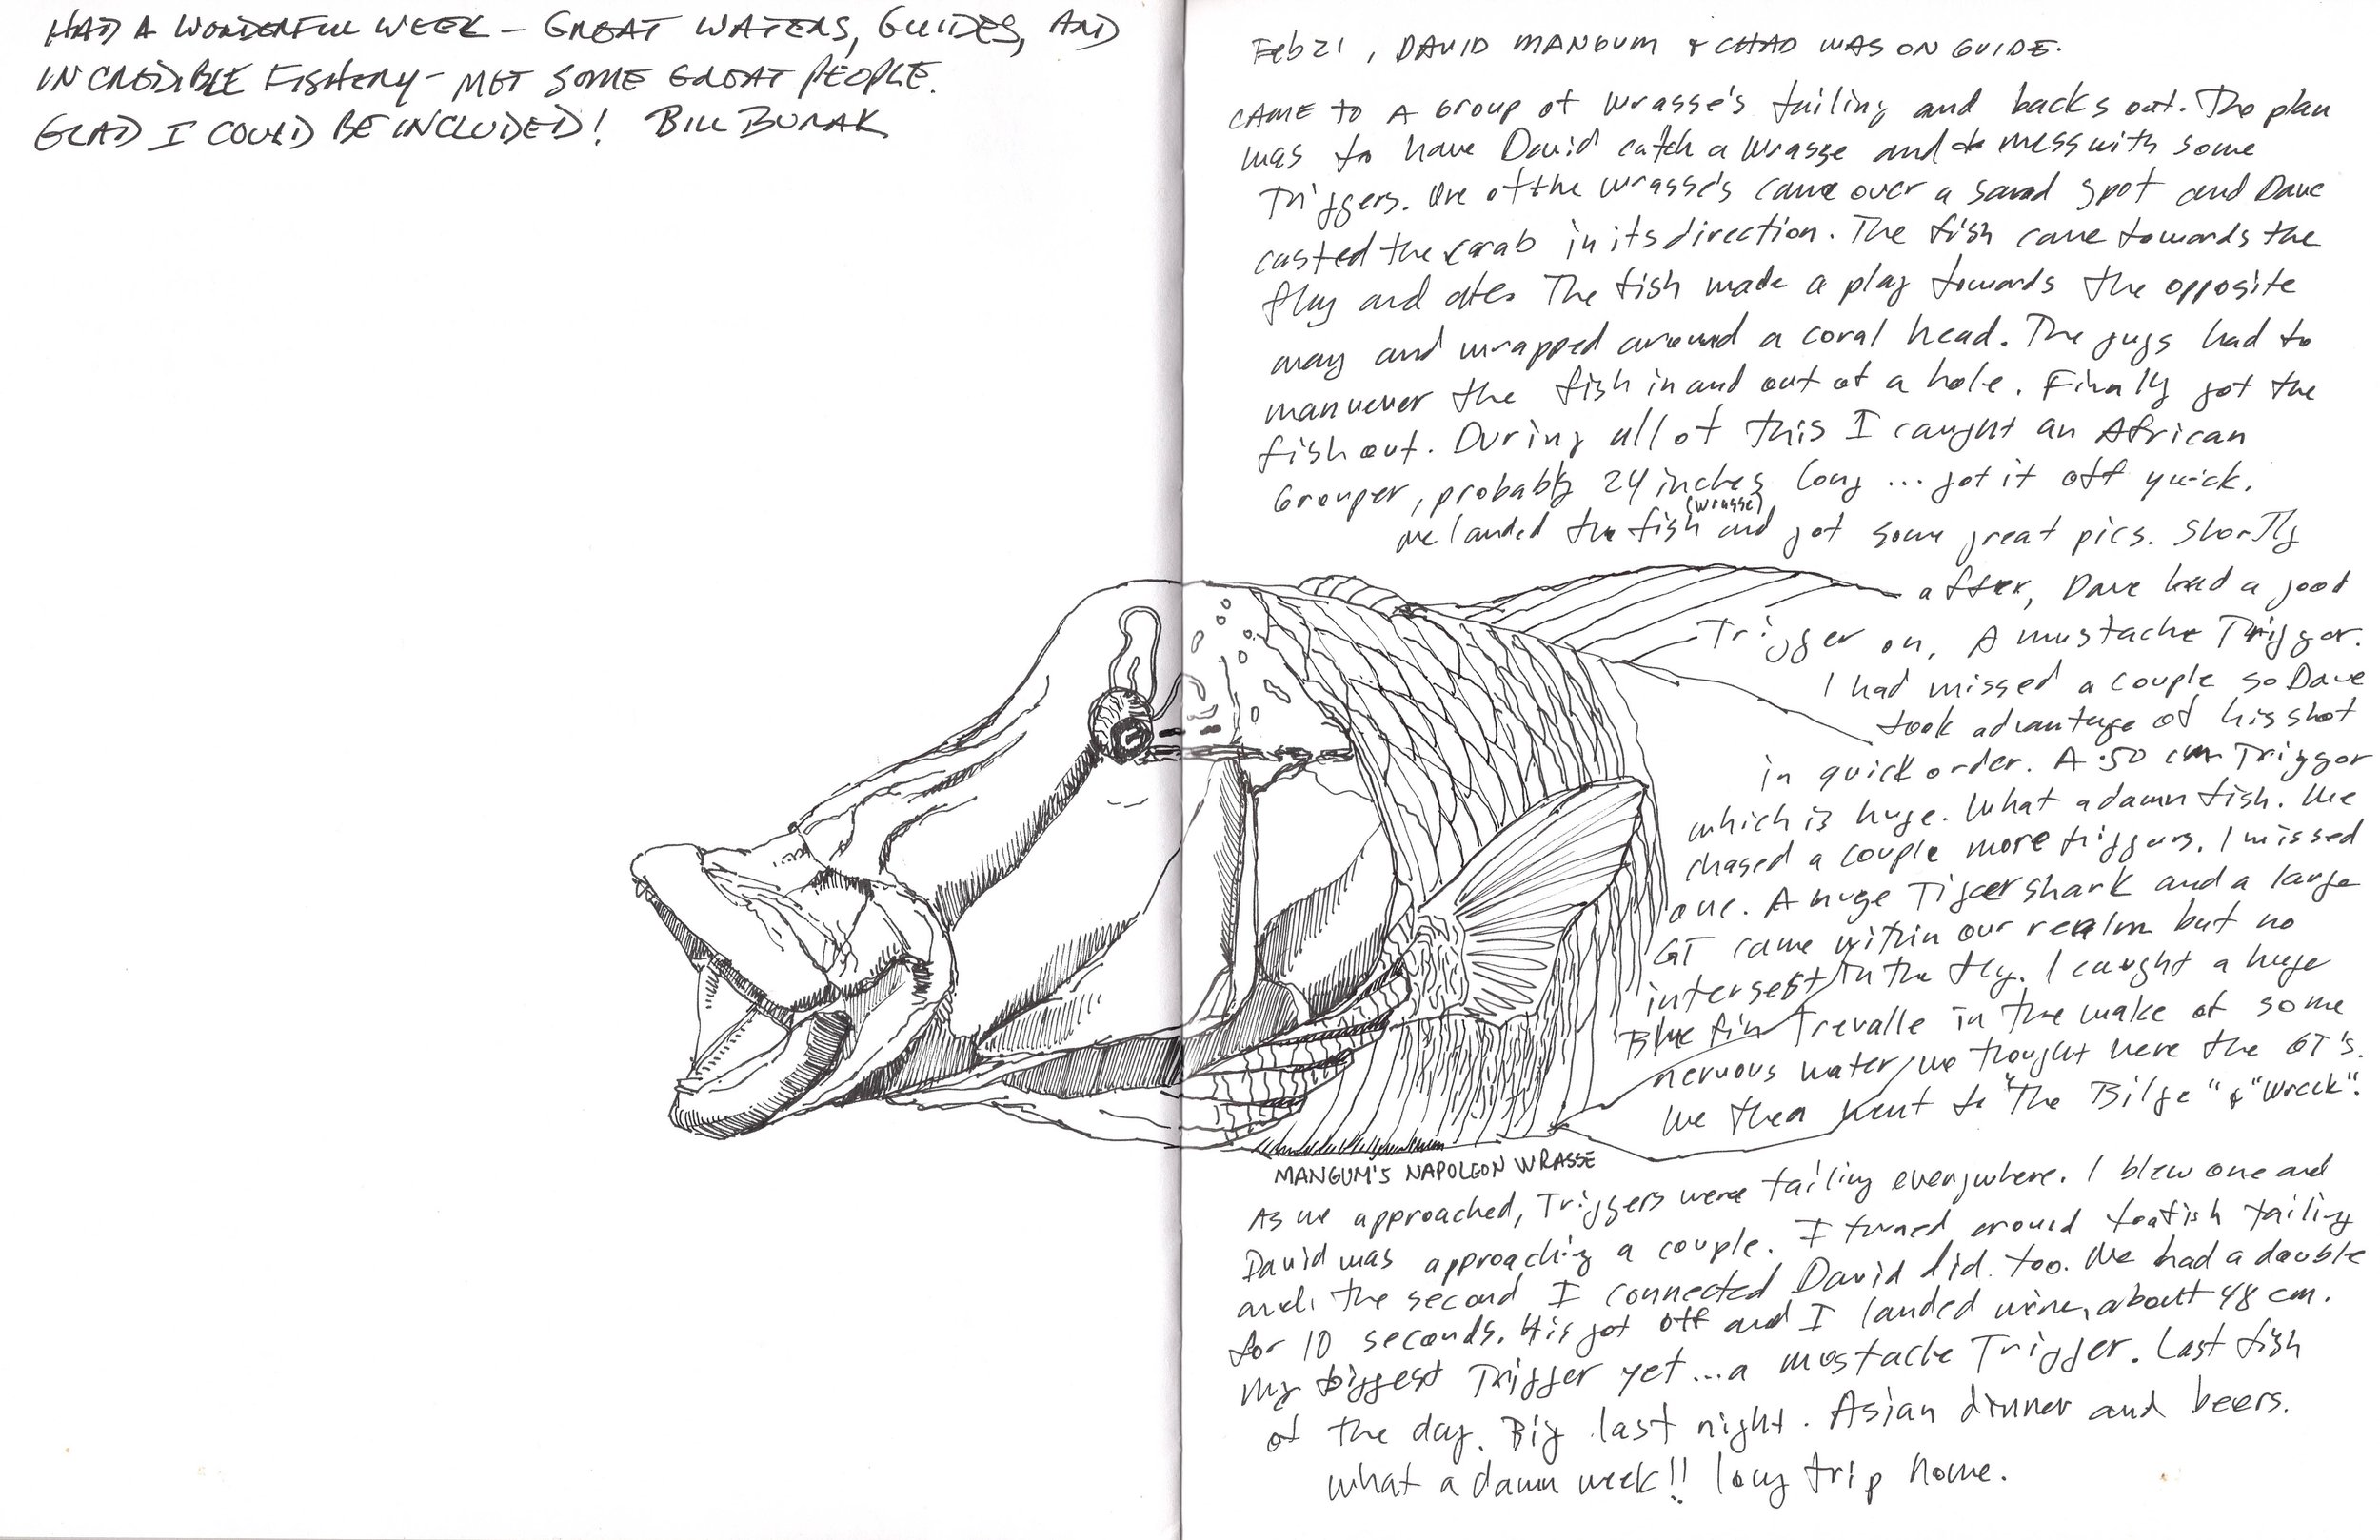 HAD A WONDERFUL WEEK – GREAT WATERS, GUIDES, AND
INCREDIBLE FISHERY – MET SOME GREAT PEOPLE.
GLAD I COULD BE INCLUDED! BILL BURAK
Feb 21, DAVID MANGUM & CHAD WAS ON GUIDE.
CAME TO A Group of Wrasse's tailing and backs out. The plan
was to have David catch a Wrasse and to mess with some
Triggers. One of the wrasse's came over a sand spot and Dave
casted the crab in its direction. The fish came towards the
flay and ate. The fish made a play towards the opposite
way and wrapped around a coral head. The guys had to
manuever the fish in and out of a hole. Finally got the
fish out. During all of this I caught an African
Grouper, probably 24 inches long ... got it off quick.
We landed the fish (wrasse) and got some great pics. Shortly
after, Dave had a good
Trigger on, A mustache Trigger.
I had missed a couple so Dave
took advantage of his shot
in quick order. A 50 cm Trigger
which is huge. What a damn fish. We
chased a couple more triggers. I missed
one. A huge Tiger shark and a large
GT came within our realm but no
intersest in the fly. I caught a huge
Blue fin Trevalle in the wake of some
nervous water we thought were the GT's.
We then went to "The Bilge" & "Wreck".
MANGUM'S NAPOLEON WRASSE
As we approached, Triggers were tailing everywhere. I blew one and
David was approaching a couple. I turned around to a fish tailing
and, the second I connected David did too. We had a double
for 10 seconds. His got off and I landed mine, about 48 cm.
My biggest Trigger yet...a mustache Trigger. Last fish
of the day. Big last night. Asian dinner and beers.
what a damn week!! long trip home.